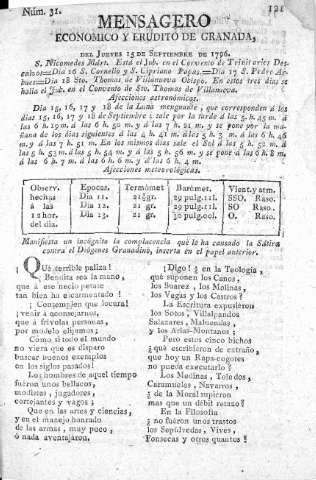 Núm. 31.
121
MENSAGERO
ECONOMICO Y ERUDITO DE GRANADA,
DEL JUEVES 15 DE SEPTIEMBRE DE 1796.
S. Nicomedes Márt. Está el Jub. en el Convento de Trinitarios Des-
calzos=Dia 16 S. Cornelio y S. Cipriano Papas.=Dia 17 S. Pedro Ar-
bues=Dia 18 Sto. Thomas de Villanueva Obispo. En estos tres dias se
halla el Jub. en el Convento de Sto. Thomas de Villanueva.
Afecciones astronómicas.
Dia 15, 16, 17 y 18 de la Luna menguante, que corresponden á los
dias 15, 16, 17 y 18 de Septiembre; sale por la tarde á las 5. h. 45 m. á
las 6 h. 19 m. á las 6 h. 50 m. y á las 7 h. 21 m. y se pone por la ma-
ñana de los dias siguientes á las 4 h. 41 m. á las 5 h. 3 m. á las 6 h. 46
m. y á las 7 h. 51 m. En los mismos dias sale el Sol á las 5 h. 52 m. á
las 5 h. 53 m. á las 5 h. 54 m. y á las 5 h. 56 m. y se pone á las 6 h. 8 m.
á las 6 h. 7 m. á las 6 h. 6 m. y á las 6 h. 4 m.
Afecciones meteorológicas.
Observ. Epocas. Termómet Barómet. Vient. y atm.
hechas Dia 11. 21½ gr. 29 pulg. 11l. SSO. Raso.
á las Dia 12. 21 gr. 29 pulg. 11l. SO. Raso.
12 hor. Dia 13. 21 gr. 30 pulg. 00l. O. Raso.
del dia.
Manifiesta un incógnito la complacencia qué le ha causado la Sátira
contra el Diógenes Granadino, inserta en el papel anterior.
¡QUé terrible paliza!
¡Bendita sea la mano,
que á ese necio petate
tan bien ha escarmentado!
¡Contemplen que locura!
¡venir á aconsejarnos,
que á frívolas personas,
por modelo elijamos;
Cómo si todo el mundo
no viera que es disparo
buscar buenos exemplos
en los siglos pasados!
Los hombres de aquel tiempo
fuéron unos bellacos,
modistas, jugadores,
cortejantes y vagos;
Que en las artes y ciencias,
y en el manejo honrado
de las armas, muy poco,
ó nada aventajáron.
¡Digo! ¿en la Teología,
qué suponen los Canos,
los Suarez, los Molinas,
los Vegas y los Castros?
La Escritura expusieron
los Sotos, Villalpandos
Salazares, Maluendas,
y los Arias-Montanos;
Pero estos cinco bichos
¿qué escribiéron de extraño,
que hoy un Rapa-cogotes
no pueda executarlo?
Los Medinas, Toledos,
Caramueles, Navarros,
¿de la Moral supieron
mas que un débil retazo?
En la Filosofia
¿no fuéron unos trastos
los Sepúlvedas, Vives,
Fonsecas y otros quantos!